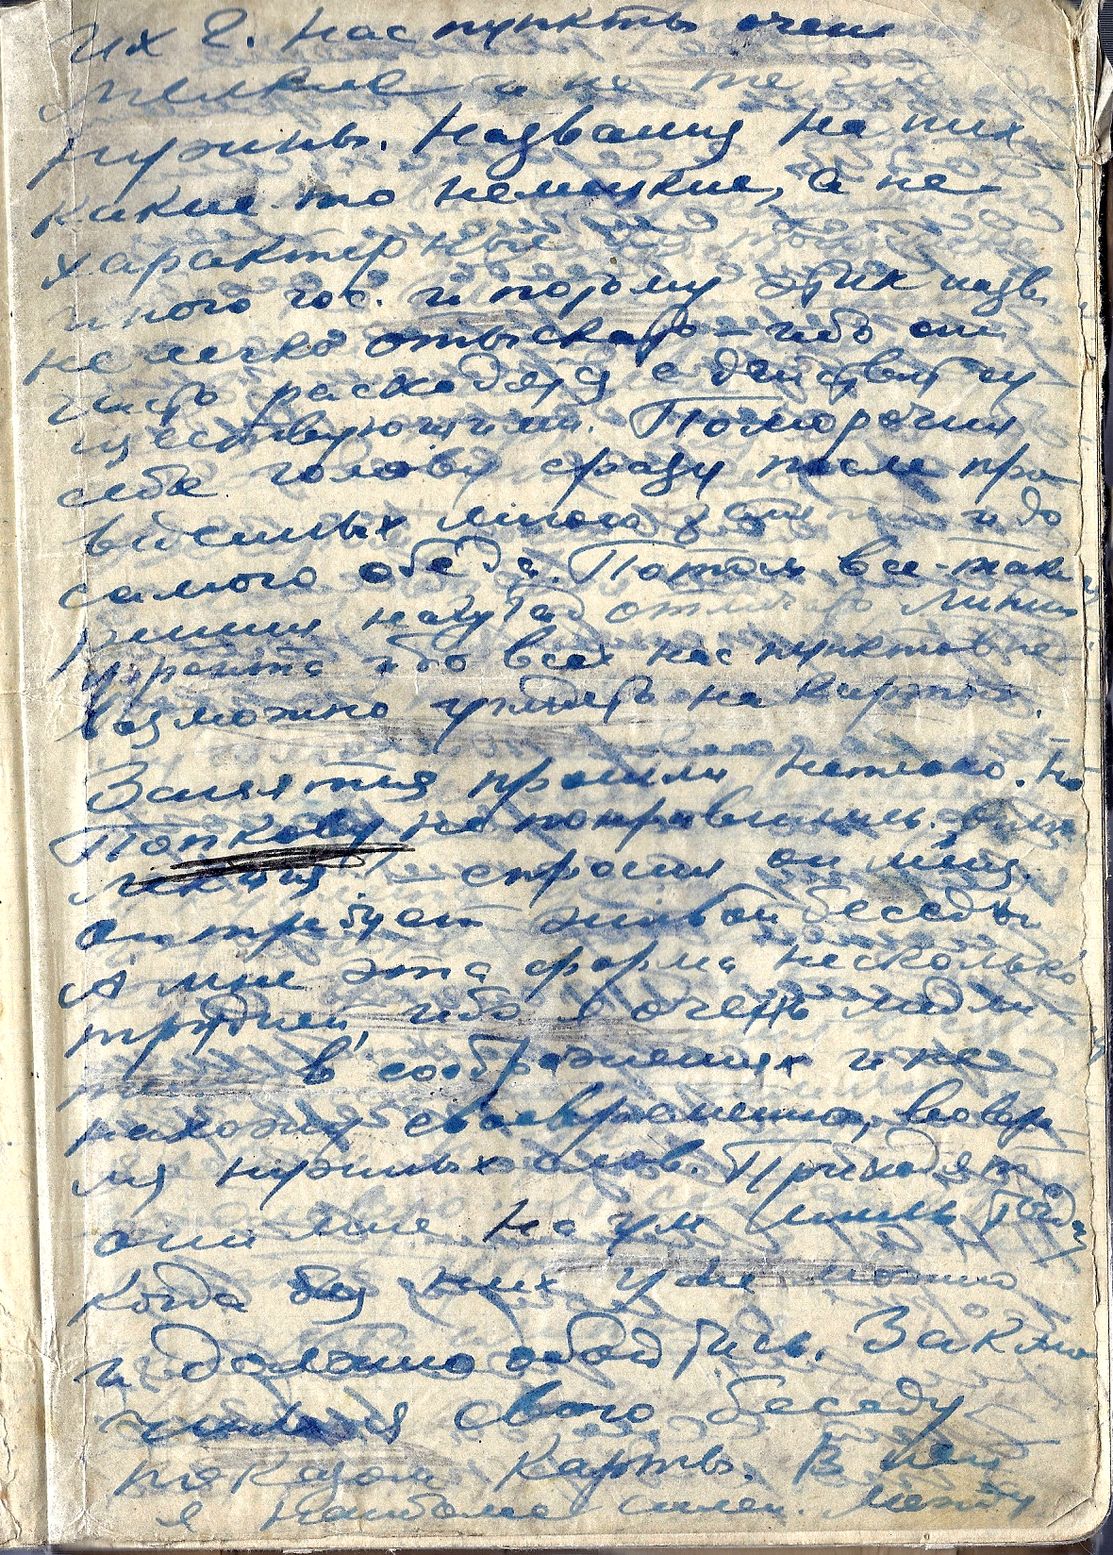 их 2. Нас пункты очень
мелкие и не те что
нужны. Названия на них
какие то немецкие, а не
характерные для
иного гос. и потому этих назв.
не легко отыскать – ибо они
часто расходятся с действит су-
ществующими. Поморочил
себе голову сразу после про
визы
самого обеда. Потом все-таки
решил наугад отмечать линию
фронта ибо всех нас пунктов не
возможно увидеть на карте.
Занятия прошли неплохо. Но
Попкову не понравились.
лекция – спросил он меня.
Он требует живой беседы
А мне эта форма несколько
трудней, ибо я очень медли
телен в соображениях и не
нахожу своевременно, вовре
мя нужных слов. Приходят
они мне на ум лишь тогда,
когда без них уже можно
и должно обойтись. Закон
чил я свою беседу
показом карты. В ней
я наиболее силен.